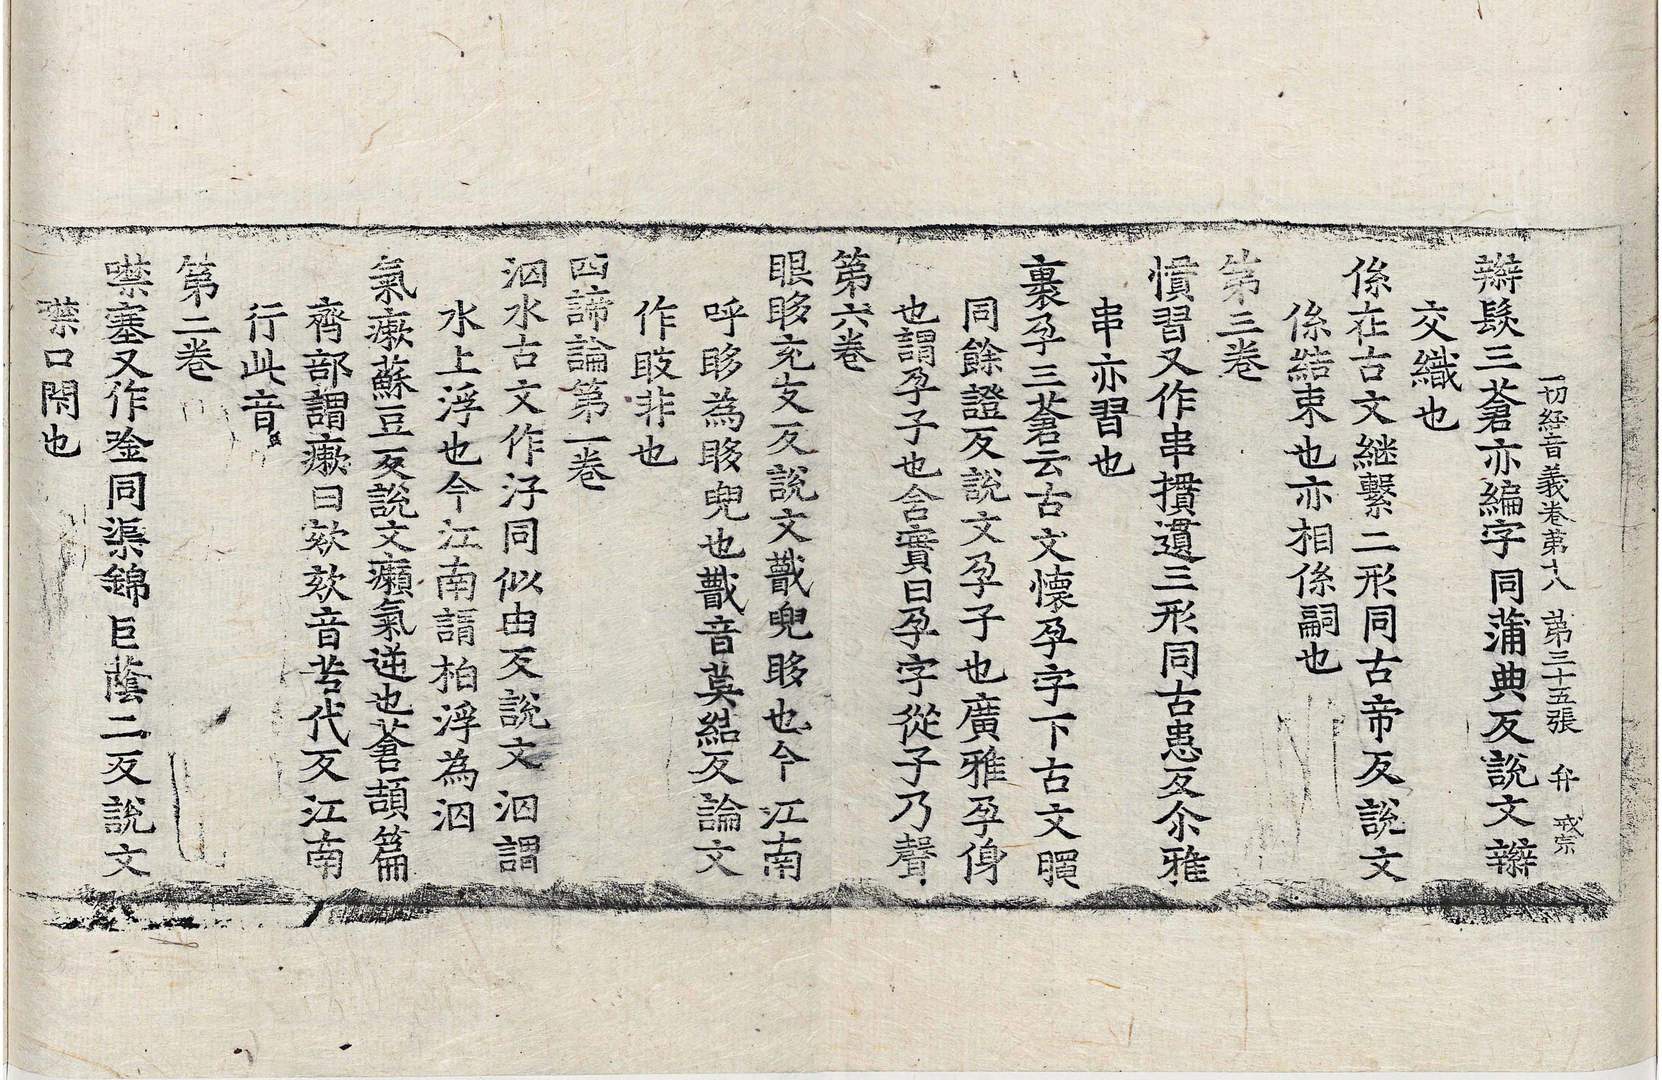 一切經音義卷第十八 第三十五張 弁 戒宗
辮髮三蒼亦編字同蒲典反説文辮
交織也
係在古文継繫二形同古帝反説文
係結束也亦相係嗣也
第三卷
慣習又作串摜遺三形同古患反尒雅
串亦習也
裹孕三蒼云古文懷孕字下古文𦝫
同餘證反説文孕子也廣雅孕身
也謂孕子也含實曰孕字從子乃聲
第六卷
眼眵充支反説文䁾兜眵也今江南
呼眵為眵兜也䁾音莫結反論文
作䀴非也
四諦論第一卷
泅水古文作汓同似由反説文泅謂
水上浮也今江南謂柏浮為泅
氣瘶蘇豆反説文瘶氣逆也蒼頡篇
齊部謂瘶曰欬欬音苦代反江南
行此音
第二卷
噤塞又作唫同渠錦巨蔭二反説文
噤口閇也